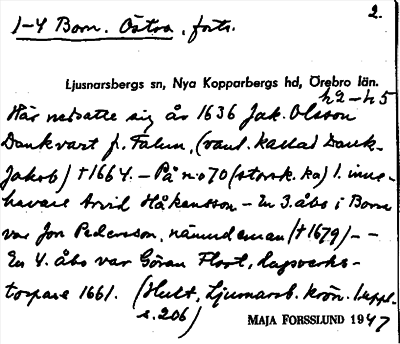 2.
1-4 Born. Östra, forts.
Ljusnarsbergs sn, Nya Kopparbergs hd, Örebro län.
h2-h5
Här nedsatte sig år 1636 Jak. Olsson
Dankvart fr. Falun, (vanl. kallad Dank-
Jakob) †1664. - På n:o 70 (storsk. ka) 1. inne-
havare Arvid Håkansson - En 3. åbo i Born
var Jon Pedersson, nämndeman (†1679) - -
En 4. åbo var Göran Flort, hagverks-
torpare 1661. (Hult, Ljusnarsb. krön. Suppl.
s. 206)
MAJA FORSSLUND 1947